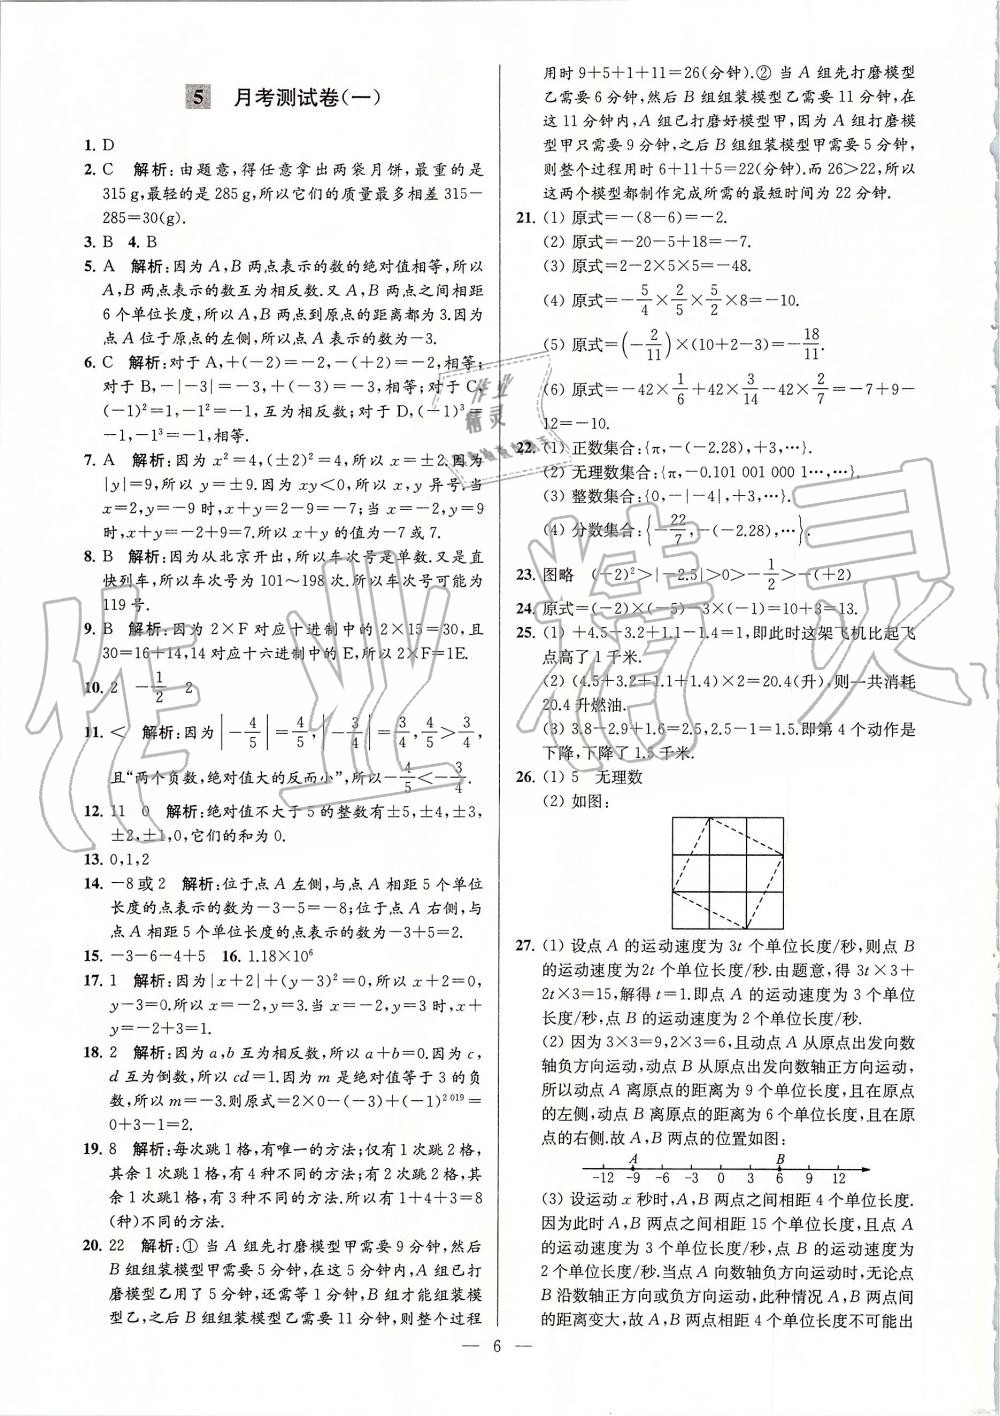 5 月考测试卷(一)
1. D
2. C 解析:由题意,得任意拿出两袋月饼,最重的是
315 g,最轻的是 285 g,所以它们的质量最多相差 315－
285=30(g).
3. B 4. B
5. A 解析:因为 A,B 两点表示的数的绝对值相等,所以
A,B 两点表示的数互为相反数.又 A,B 两点之间相距
6 个单位长度,所以 A,B 两点到原点的距离都为 3.因为
点 A 位于原点的左侧,所以点 A 表示的数为－3.
6. C 解析:对于 A,+(－2)=－2,－(+2)=－2,相等;
对于 B,－|－3|=－3,+(－3)=－3,相等;对于 C,
(－1)²=1,－1²=－1,互为相反数;对于 D,(－1)³=
－1,－1³=－1,相等.
7. A 解析:因为 x²=4,(±2)²=4,所以 x=±2.因为
|y|=9,所以 y=±9.因为 xy<0,所以 x,y 异号.当
x=2,y=－9 时,x+y=2－9=－7;当 x=－2,y=9
时,x+y=－2+9=7.所以 x+y 的值为－7 或 7.
8. B 解析:因为从北京开出,所以车次号是单数.又是直
快列车,所以车次号为 101～198 次.所以车次号可能为
119 号.
9. B 解析:因为 2×F 对应十进制中的 2×15=30,且
30=16+14,14 对应十六进制中的 E,所以 2×F=1E.
10. 2 －1/2 2
11. < 解析:因为|－4/5|=4/5,|－3/4|=3/4,4/5>3/4,
且“两个负数,绝对值大的反而小”,所以－4/5<－3/4.
12. 11 0 解析:绝对值不大于 5 的整数有±5,±4,±3,
±2,±1,0,它们的和为 0.
13. 0,1,2
14. －8 或 2 解析:位于点 A 左侧,与点 A 相距 5 个单位
长度的点表示的数为－3－5=－8;位于点 A 右侧,与
点 A 相距 5 个单位长度的点表示的数为－3+5=2.
15. －3－6－4+5 16. 1.18×10⁶
17. 1 解析:因为|x+2|+(y－3)²=0,所以 x+2=0,
y－3=0.所以 x=－2,y=3.当 x=－2,y=3 时,x+
y=－2+3=1.
18. 2 解析:因为 a,b 互为相反数,所以 a+b=0.因为 c,
d 互为倒数,所以 cd=1.因为 m 是绝对值等于 3 的负
数,所以 m=－3.则原式=2×0－(－3)+(－1)²⁰¹⁹=
0+3－1=2.
19. 8 解析:每次跳 1 格,有唯一的方法;仅有 1 次跳 2 格,
其余 1 次跳 1 格,有 4 种不同的方法;有 2 次跳 2 格,其
余 1 次跳 1 格,有 3 种不同的方法.所以有 1+4+3=8
(种)不同的方法.
20. 22 解析:① 当 A 组先打磨模型甲需要 9 分钟,然后
B 组组装模型甲需要 5 分钟,在这 5 分钟内,A 组已打
磨模型乙用了 5 分钟,还需等 1 分钟,B 组才能组装模
型乙,之后 B 组组装模型乙需要 11 分钟,则整个过程
用时 9+5+1+11=26(分钟).② 当 A 组先打磨模型
乙需要 6 分钟,然后 B 组组装模型乙需要 11 分钟,在
这 11 分钟内,A 组已打磨好模型甲,因为 A 组打磨模
型甲只需要 9 分钟,之后 B 组组装模型甲需要 5 分钟,
则整个过程用时 6+11+5=22(分钟).而 26>22,所以
这两个模型都制作完成所需的最短时间为 22 分钟.
21. (1) 原式=－(8－6)=－2.
(2) 原式=－20－5+18=－7.
(3) 原式=2－2×5×5=－48.
(4) 原式=－5/4×2/5×5/2×8=－10.
(5) 原式=(－2/11)×(10+2－3)=－18/11.
(6) 原式=－42×1/6+42×3/14－42×2/7=－7+9－
12=－10.
22. (1) 正数集合:{π,－(－2.28),+3,…}.
(2) 无理数集合:{π,－0.101 001 000 1…,…}.
(3) 整数集合:{0,－|－4|,+3,…}.
(4) 分数集合:{－22/7,－(－2.28),…}.
23. 图略 (－2)²>|－2.5|>0>－1/2>－(+2)
24. 原式=(－2)×(－5)－3×(－1)=10+3=13.
25. (1) +4.5－3.2+1.1－1.4=1,即此时这架飞机比起飞
点高了 1 千米.
(2) (4.5+3.2+1.1+1.4)×2=20.4(升),则一共消耗
20.4 升燃油.
(3) 3.8－2.9+1.6=2.5,2.5－1=1.5.即第 4 个动作是
下降,下降了 1.5 千米.
26. (1) 5 无理数
(2) 如图:
27. (1) 设点 A 的运动速度为 3t 个单位长度/秒,则点 B
的运动速度为 2t 个单位长度/秒.由题意,得 3t×3+
2t×3=15,解得 t=1.即点 A 的运动速度为 3 个单位
长度/秒,点 B 的运动速度为 2 个单位长度/秒.
(2) 因为 3×3=9,2×3=6,且动点 A 从原点出发向数
轴负方向运动,动点 B 从原点出发向数轴正方向运动,
所以动点 A 离原点的距离为 9 个单位长度,且在原点
的左侧,动点 B 离原点的距离为 6 个单位长度,且在原
点的右侧.故 A,B 两点的位置如图:
A B
－12 －9 －6 －3 0 3 6 9 12
(3) 设运动 x 秒时,A,B 两点之间相距 4 个单位长度.
因为此时 A,B 两点之间相距 15 个单位长度,且点 A
的运动速度为 3 个单位长度/秒,点 B 的运动速度为
2 个单位长度/秒.当点 A 向数轴负方向运动时,无论点
B 沿数轴正方向或负方向运动,此种情况 A,B 两点间
的距离变大,故 A,B 两点相距 4 个单位长度不可能出
— 6 —
作业精灵
作业
精灵